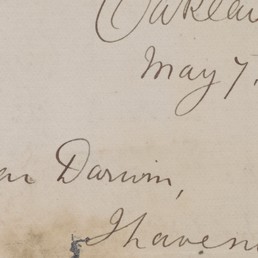 Oaklan
May 7.
ar Darwin,
I have n